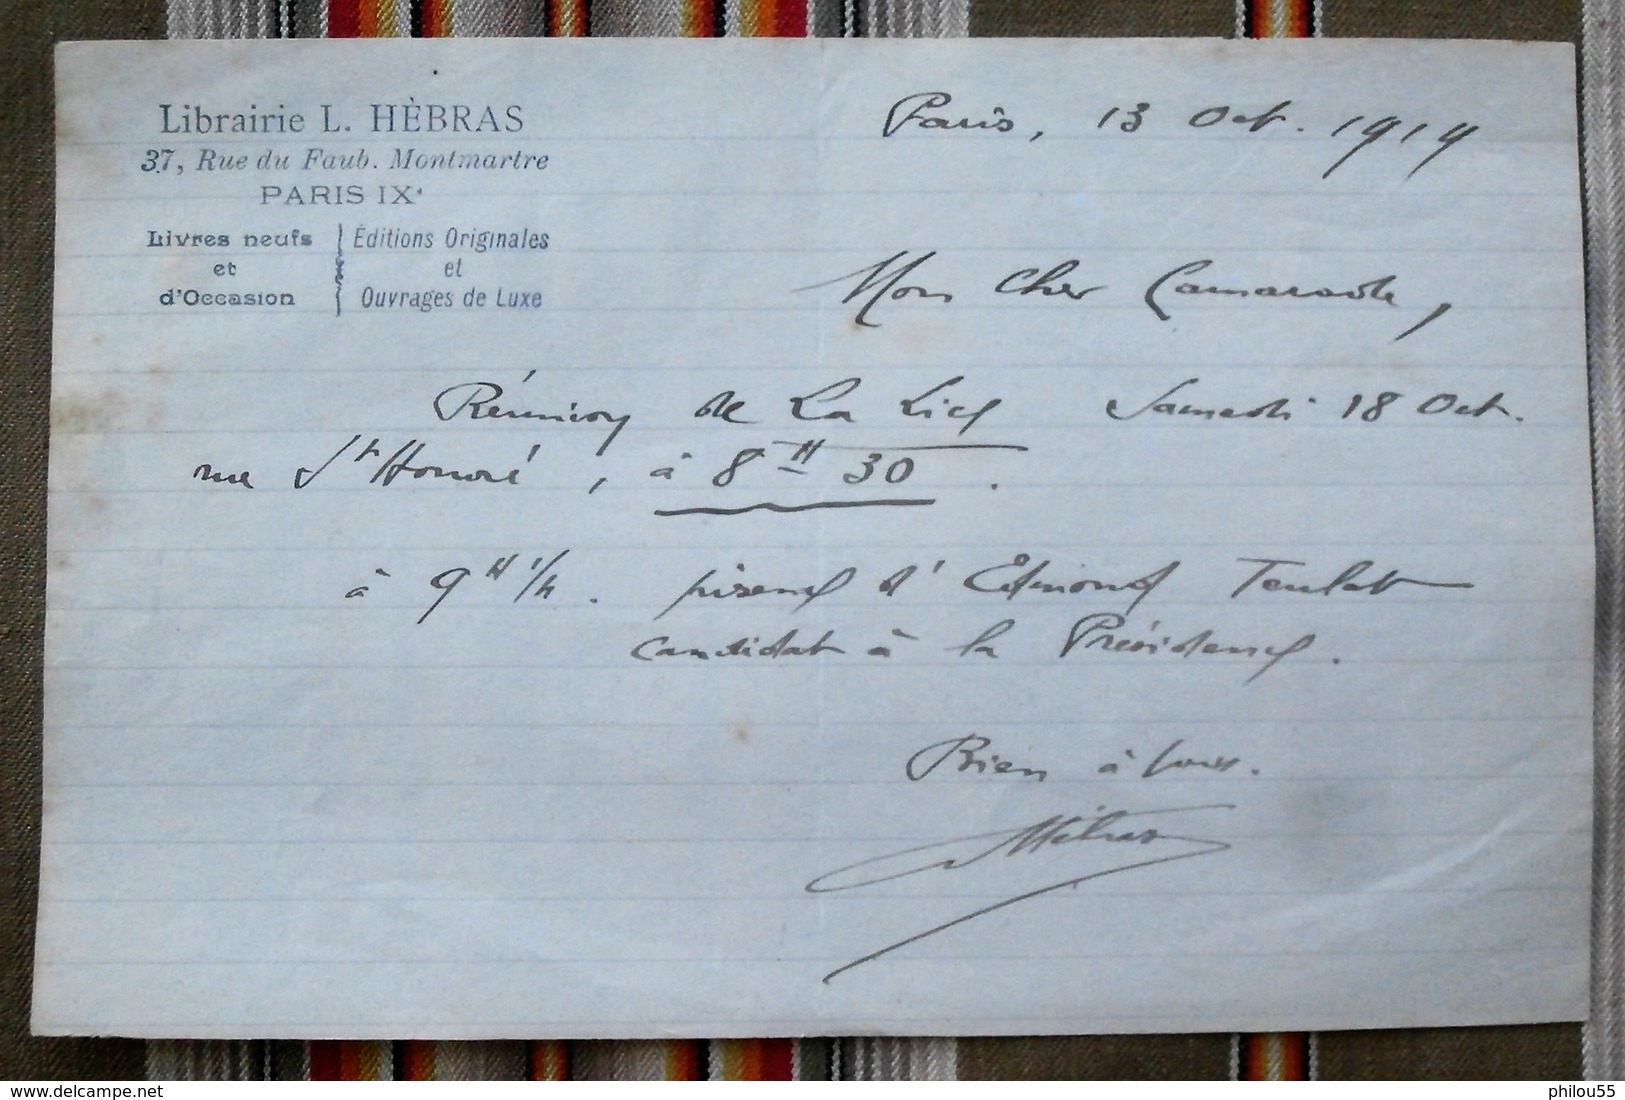 Librairie L. HÈBRAS
37, Rue du Faub. Montmartre
PARIS IXᵉ
Livres neufs
et
d'Occasion
Éditions Originales
et
Ouvrages de Luxe
Paris, 13 Oct. 1919
Mon Cher Camarade,
Réunion de La Lice Samedi 18 Oct.
rue St Honoré, à 8 H 30.
à 9 H 1/4. présence d'Edmond Teulet
candidat à la Présidence.
Bien à vous.
Hébras
www.delcampe.net
philou55